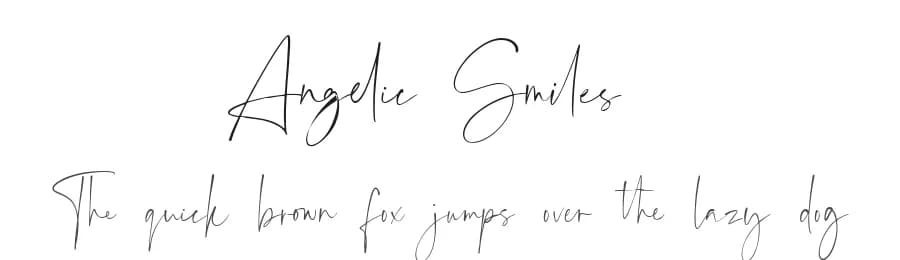 Angelic Smiles
The quick brown fox jumps over the lazy dog